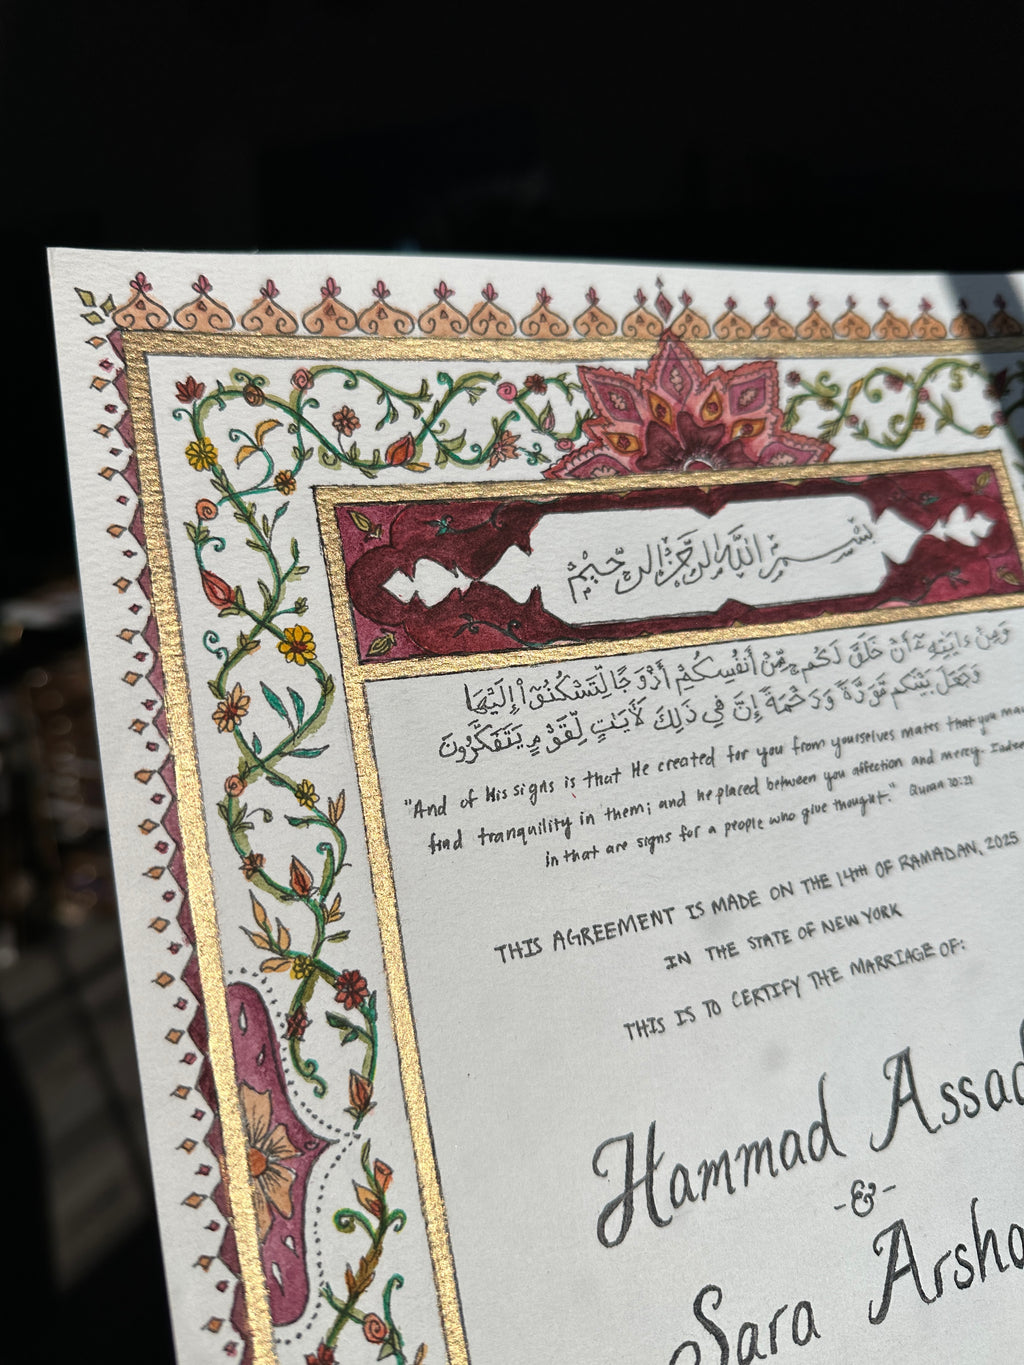 بِسْمِ اللهِ الرَّحْمٰنِ الرَّحِيْمِ
وَمِنْ ءَايَٰتِهِۦٓ أَنْ خَلَقَ لَكُم مِّنْ أَنْفُسِكُمْ أَزْوَٰجًا لِّتَسْكُنُوٓا۟ إِلَيْهَا
وَجَعَلَ بَيْنَكُم مَّوَدَّةً وَرَحْمَةً إِنَّ فِي ذَٰلِكَ لَأَيَٰتٍ لِّقَوْمٍ يَتَفَكَّرُونَ
"And of His signs is that He created for you from yourselves mates that you may
find tranquility in them; and he placed between you affection and mercy. Indeed
in that are signs for a people who give thought." Quran 30:21
THIS AGREEMENT IS MADE ON THE 14TH OF RAMADAN, 2025
IN THE STATE OF NEW YORK
THIS IS TO CERTIFY THE MARRIAGE OF:
Hammad Assad
-&-
Sara Arsha